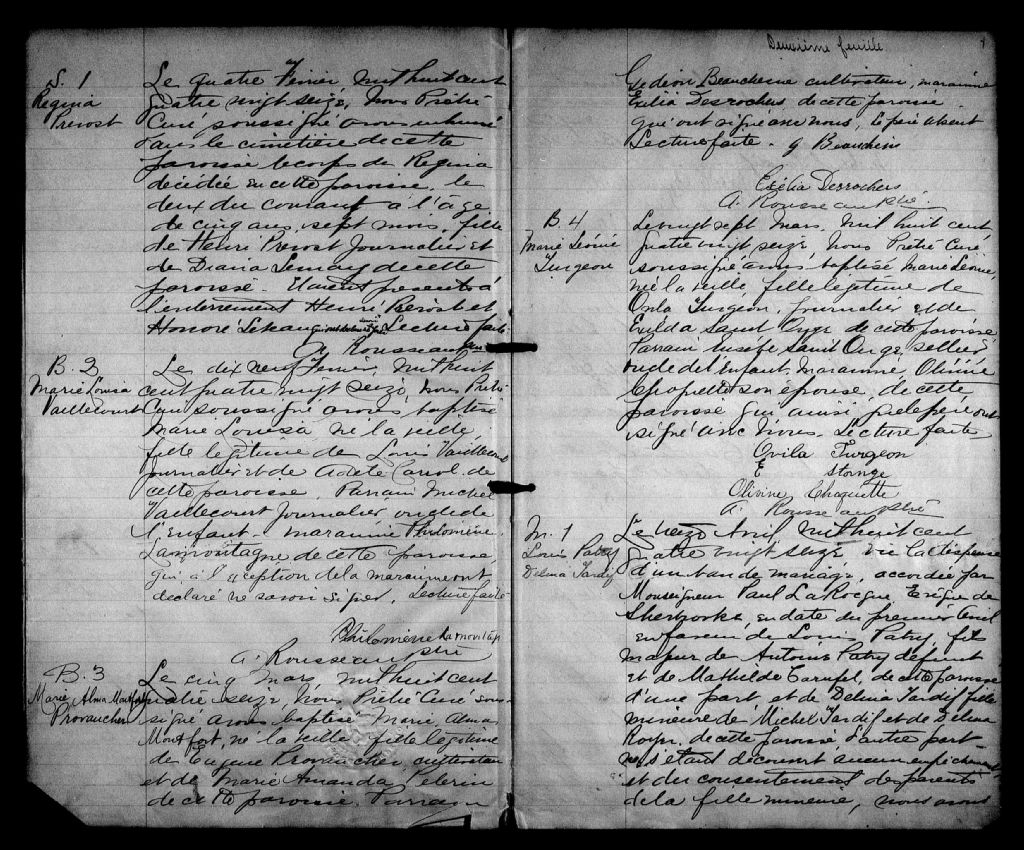 S. 1
Regina
Prevost
Le quatre Fevrier, mil huit cent
quatre vingt seize, Nous Prêtre
Curé soussigné avons inhumé
dans le cimetière de cette
paroisse le corps de Regina
décédée en cette paroisse, le
deux du courant à l'âge
de cinq ans, sept mois, fille
de Henri Prevost Journalier et
de Diana Lemay de cette
paroisse. Etaient présents à
l'enterrement Henri Prevost et
Honoré Lecture faite
A. Rousseau ptre
B. 3
Marie Louisa
Vaillecourt
Le dix neuf Fevrier, mil huit
cent quatre vingt seize, nous Prêtre
Curé soussigné avons baptisé
Marie Louisa né la veille,
fille légitime de Louis Vaillecourt
journalier et de Adele de
cette paroisse. Parrain Michel
Vaillecourt Journalier oncle de
l'Enfant - marainne Philomène
Lamontagne de cette paroisse,
qui à l'exception de la marainne ont
declaré ne savoir signer. Lecture faite
Philomene Lamontagne
A. Rousseau ptre
B. 3
Marie Alma Montfort
Provancher
Le cinq mars mil huit cent
quatre seize, Nous Prêtre Curé sous-
signé avons baptisé Marie, Alma
Montfort, né la veille fille légitime
de Eugene Provancher, cultivateur
et de Marie Amanda Pelerin
de cette paroisse. Parrain
Deuxième feuille
Gedeon Beauchesne cultivateur, marainne
Exilia Desrochers de cette paroisse
qui ont signé avec nous, le père absent
Lecture faite - G Beauchesne
Exilia Desrochers
A. Rousseau ptre.
B. 4
Marie Léonie
Turgeon
Le vingt sept Mars, mil huit cent
quatre vingt seize, Nous Prêtre Curé
soussigné avons baptisé Marie Léonie
née la veille, fille legitime de
Ovila Turgeon, journalier et de
Exilda Saint Onge de cette paroisse
Parrain Saint Onge, sellier
oncle de l'Enfant, Marainne, Olivine
Choquette son épouse, de cette
paroisse qui ainsi que le père ont
signé avec Nous. Lecture faite
Ovila Turgeon
E Stonge
Olivine Choquette
A. Rousseau ptre
M. 1
Louis Patry
Delma Tardif
Le Avril mil huit cent
quatre vingt seize, vu la dispense
d'un ban de mariage, accordée par
Monseigneur Paul LaRocque Evêque de
Sherbrooke, en date du premier Avril
en faveur de Louis Patry, fils
majeur de Antoine Patry défunt
et de Mathilde de cette paroisse
d'une part et de Delma Tardif fille
mineure de Michel Tardif et de Delma
de cette paroisse d'autre part
ne s'étant découvert aucun empêchement
et du consentement des parents
de la fille mineure, nous avons